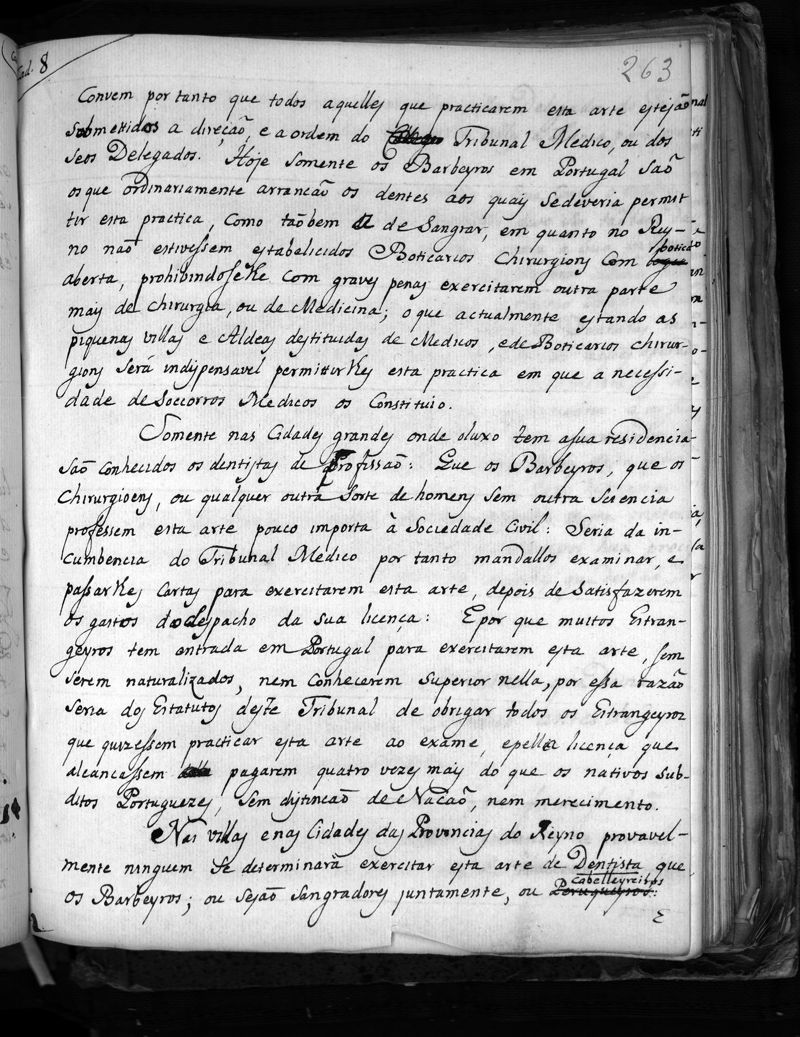 Cad. 8
263
Convem por tanto que todos aquelles que practicarem esta arte estejaõ
sobmetidos a direçaõ, e a ordem do Tribunal Medico, ou dos
seos Delegados. Hoje somente os Barbeyros em Portugal saõ
os que ordinariamente arrancaõ os dentes aos quais se deveria permit
tir esta practica, como taõbem a de Sangrar, em quanto no Rey-
no naõ estivessem estabelicidos Boticarios Chirurgions com botica
aberta, prohibindoselhe com graves penas exercitarem outra parte
mais de chirurgia, ou de Medicina; o que actualmente estando as
piquenas villas e Aldeas destituidas de Medicos, e de Boticarios chirur-
gions será indispensavel permittirlhes esta practica em que a necessi-
dade de Soccorros Medicos os Constituio.
Somente nas Cidades grandes onde o luxo tem a sua residencia
saõ conhecidos os dentistas de profissaõ: Que os Barbeyros, que os
Chirurgioens, ou qualquer outra sorte de homens sem outra sciencia
professem esta arte pouco importa à Sociedade Civil: Seria da in-
cumbencia do Tribunal Medico por tanto mandallos examinar, e
passarlhes Cartas para exercitarem esta arte, depois de satisfazerem
os gastos do despacho da sua licença: E por que muitos Estran-
geyros tem entrada em Portugal para exercitarem esta arte, sem
serem naturalizados, nem conhecerem superior nella, por essa razaõ
seria dos Estatutos deste Tribunal de obrigar todos os Estrangeyros
que quizessem practicar esta arte ao exame, e pella licença que
alcancassem pagarem quatro vezes mais do que os nativos sub-
ditos Portuguezes, sem distincaõ de Nacaõ, nem merecimento.
Nas villas e nas Cidades das Provincias do Reyno provavel-
mente ninguem se determinarà exercitar esta arte de Dentista que
os Barbeyros; ou sejaõ sangradores juntamente, ou cabelleyreiros
Peruqueyros:
E